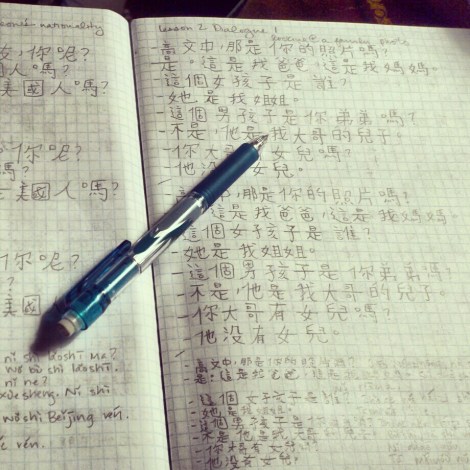 nationality
你呢?
國人嗎?
美國人嗎?
你呢?
嗎?
美國人嗎?
你呢?
?
美國
nǐ shì lǎoshī ma?
wǒ bù shì lǎoshī.
nǐ ne?
xuésheng. Nǐ shì
wǒ shì Běijīng rén.
rén.
Lesson 2 Dialogue 1
- 高文中,那是你的照片嗎?
- 是。這是我爸爸,這是我媽媽.
- 這個女孩子是誰?
- 她是我姐姐.
- 這個男孩子是你弟弟嗎?
- 不是,他是我大哥的兒子.
- 你大哥有女兒嗎?
- 他沒有女兒.
- 高文中,那是你的照片嗎?
這是我爸爸,這是我媽媽
這個女孩子是誰?
- 她是我姐姐.
- 這個男孩子是你弟弟嗎?
- 不是,他是我大哥的兒子.
- 你大哥有女兒嗎?
- 他沒有女兒。
高文中,那是你的照片嗎?
是。這是我爸爸,這是
這個女孩子是誰?
- 她是我姐姐.
這個男孩子是
不是他是我大
你大哥有女兒
他沒有女兒